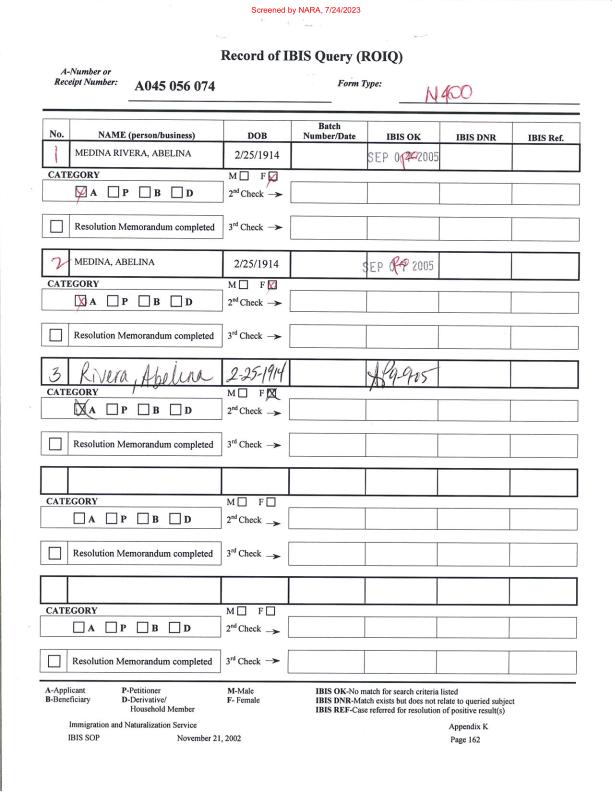 Screened by NARA, 7/24/2023
Record of IBIS Query (ROIQ)
A-Number or
Receipt Number: A045 056 074 Form Type: N400
No. NAME (person/business) DOB Batch Number/Date IBIS OK IBIS DNR IBIS Ref.
1 MEDINA RIVERA, ABELINA 2/25/1914 SEP 2005
CATEGORY M F
A P B D 2nd Check →
Resolution Memorandum completed 3rd Check →
2 MEDINA, ABELINA 2/25/1914 SEP 2005
CATEGORY M F
A P B D 2nd Check →
Resolution Memorandum completed 3rd Check →
3 Rivera, Abelina 2-25-1914
CATEGORY M F
A P B D 2nd Check →
Resolution Memorandum completed 3rd Check →
CATEGORY M F
A P B D 2nd Check →
Resolution Memorandum completed 3rd Check →
CATEGORY M F
A P B D 2nd Check →
Resolution Memorandum completed 3rd Check →
A-Applicant P-Petitioner M-Male IBIS OK-No match for search criteria listed
B-Beneficiary D-Derivative/ F- Female IBIS DNR-Match exists but does not relate to queried subject
Household Member IBIS REF-Case referred for resolution of positive result(s)
Immigration and Naturalization Service Appendix K
IBIS SOP November 21, 2002 Page 162